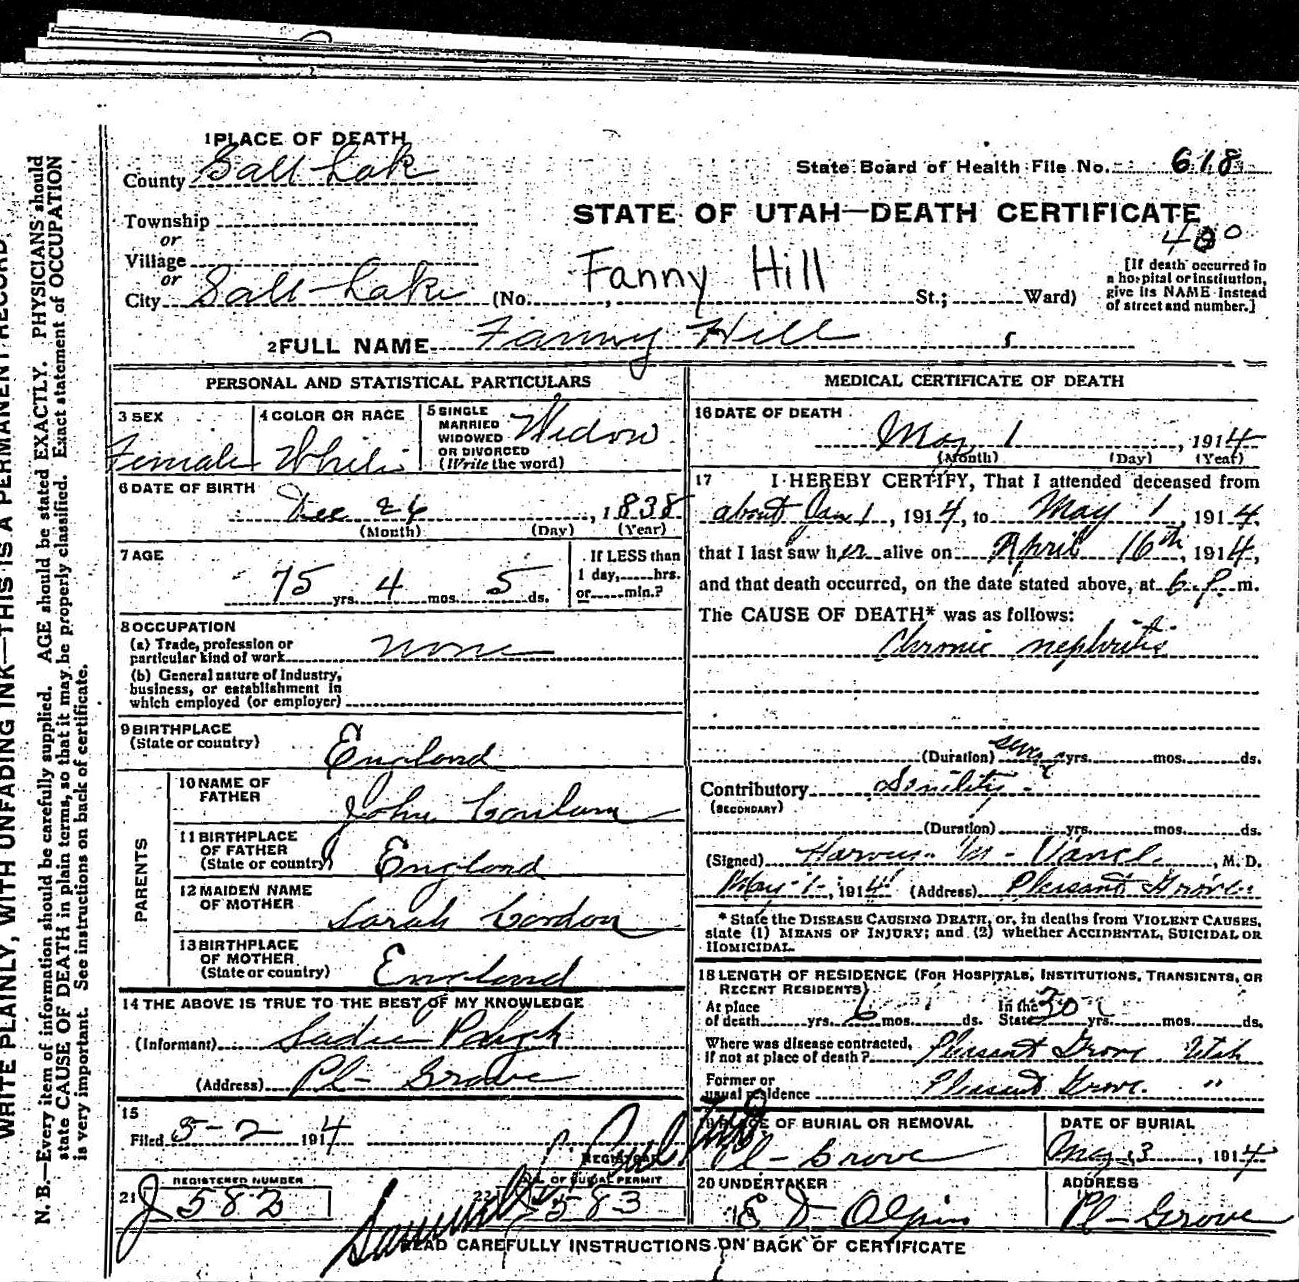 1 PLACE OF DEATH
County Salt Lak
State Board of Health File No. 618
Township
or
Village
or
City Salt Lake (No. , St.; Ward)
STATE OF UTAH—DEATH CERTIFICATE
400
Fanny Hill
[If death occurred in
a hospital or institution,
give its NAME instead
of street and number.]
2 FULL NAME Fanny Hill
PERSONAL AND STATISTICAL PARTICULARS
3 SEX
Female
4 COLOR OR RACE
White
5 SINGLE
MARRIED
WIDOWED
OR DIVORCED
(Write the word)
Widow
6 DATE OF BIRTH
Dec 26, 1838
(Month) (Day) (Year)
7 AGE
75 yrs. 4 mos. 5 ds.
If LESS than
1 day, hrs.
or min.?
8 OCCUPATION
(a) Trade, profession or
particular kind of work none
(b) General nature of industry,
business, or establishment in
which employed (or employer)
9 BIRTHPLACE
(State or country)
England
PARENTS
10 NAME OF
FATHER
John
11 BIRTHPLACE
OF FATHER
(State or country)
England
12 MAIDEN NAME
OF MOTHER
Sarah Cordon
13 BIRTHPLACE
OF MOTHER
(State or country)
England
14 THE ABOVE IS TRUE TO THE BEST OF MY KNOWLEDGE
(Informant) Sadie
(Address) Pl- Grove
15
Filed 5-2 1914
REGISTRAR
REGISTERED NUMBER
21 582
22 OF BURIAL PERMIT
583
MEDICAL CERTIFICATE OF DEATH
16 DATE OF DEATH
May 1, 1914
(Month) (Day) (Year)
17 I HEREBY CERTIFY, That I attended deceased from
about Jan 1, 1914, to May 1, 1914.
that I last saw her alive on April 16th, 1914,
and that death occurred, on the date stated above, at 6 P. m.
The CAUSE OF DEATH* was as follows:
Chronic nephritis
(Duration) yrs. mos. ds.
Contributory Senility
(SECONDARY)
(Duration) yrs. mos. ds.
(Signed) M. Vance, M. D.
May-1-, 1914 (Address) Pleasant Grove
* State the DISEASE CAUSING DEATH, or, in deaths from VIOLENT CAUSES,
state (1) MEANS OF INJURY; and (2) whether ACCIDENTAL, SUICIDAL OR
HOMICIDAL.
18 LENGTH OF RESIDENCE (FOR HOSPITALS, INSTITUTIONS, TRANSIENTS, OR
RECENT RESIDENTS)
At place
of death yrs. 6 mos. ds. In the
State 30 yrs. mos. ds.
Where was disease contracted,
if not at place of death? Pleasant Grove Utah
Former or
usual residence Pleasant Grove. "
19 PLACE OF BURIAL OR REMOVAL
Pl- Grove
DATE OF BURIAL
May 3, 1914
20 UNDERTAKER
E D Olpin
ADDRESS
Pl- Grove
READ CAREFULLY INSTRUCTIONS ON BACK OF CERTIFICATE
WRITE PLAINLY, WITH UNFADING INK—THIS IS A PERMANENT RECORD.
N. B.—Every item of information should be carefully supplied. AGE should be stated EXACTLY. PHYSICIANS should
state CAUSE OF DEATH in plain terms, so that it may be properly classified. Exact statement of OCCUPATION
is very important. See instructions on back of certificate.